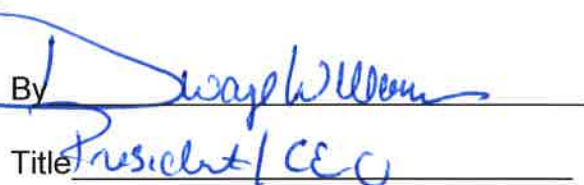 By Dwayne Williams
Title President / CEO